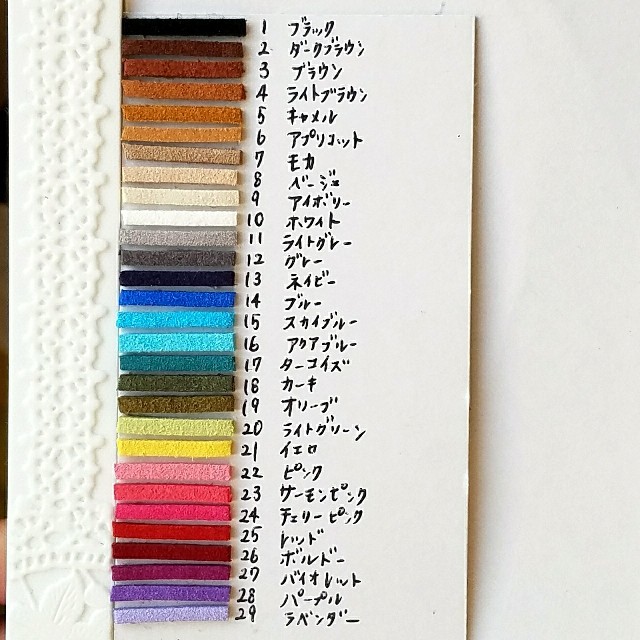 1 ブラック
2 ダークブラウン
3 ブラウン
4 ライトブラウン
5 キャメル
6 アプリコット
7 モカ
8 ベージュ
9 アイボリー
10 ホワイト
11 ライトグレー
12 グレー
13 ネイビー
14 ブルー
15 スカイブルー
16 アクアブルー
17 ターコイズ
18 カーキ
19 オリーブ
20 ライトグリーン
21 イエロ
22 ピンク
23 サーモンピンク
24 チェリーピンク
25 レッド
26 ボルドー
27 バイオレット
28 パープル
29 ラベンダー